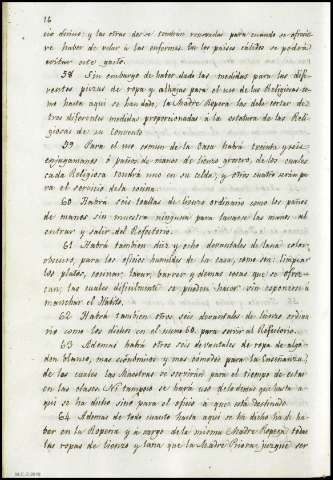 16
cio divino; y las otras doce tendrán reservadas para cuándo se ofreciere haber de velar à las enfermas. En los paises cálidos se podrá
evitar este gasto.
58 Sin embargo de haber dado las medidas para las dife-
rentes piezas de ropa y alhajas para el uso de las Religiosas co-
mo hasta aqui se han dado, la Madre Ropera las debe cortar de
tres diferentes medidas proporcionadas à la estatura de las Reli-
giosas de su Convento.
59 Para el uso comun de la Casa habrá treinta y seis
enjugamanos ó paños de manos de lienzo grosero, de los cuales
cada Religiosa tendrá uno en su celda, y otros cuatro serán pa-
ra el servicio de la cocina.
60 Habrá seis toallas de lienzo ordinario como los paños
de manos sin muestra ninguna para lavarse las manos al
entrar y salir del Refectorio.
61 Habrá tambien diez y ocho devantales de lana color
obscuro, para los oficios humildes de la casa, como son: limpiar
los platos, cocinar, lavar, barrer y demas cosas que se ofrez-
can, las cuales dificilmente se pueden hacer sin esponerse á
manchar el Hábito.
62 Habrá tambien otros seis devantales de lienzo ordina
rio como los dichos en el num.o 60. para servir al Refectorio.
63 Ademas habrá otros seis devantales de ropa de algo-
don blanco, mas económico y mas cómodo para la Enseñanza,
de los cuales las Maestras se servirán para el tiempo de estar
en las clases. Ni tampoco se hará uso de lo demás que hasta a-
qui se ha dicho sino para el oficio á que está destinado.
64 Ademas de todo cuanto hasta aqui se ha dicho ha de ha-
ber en la Ropería y á cargo de la misma Madre Ropera todas
las ropas de lienzo y lana que la Madre Priora juzgue ser